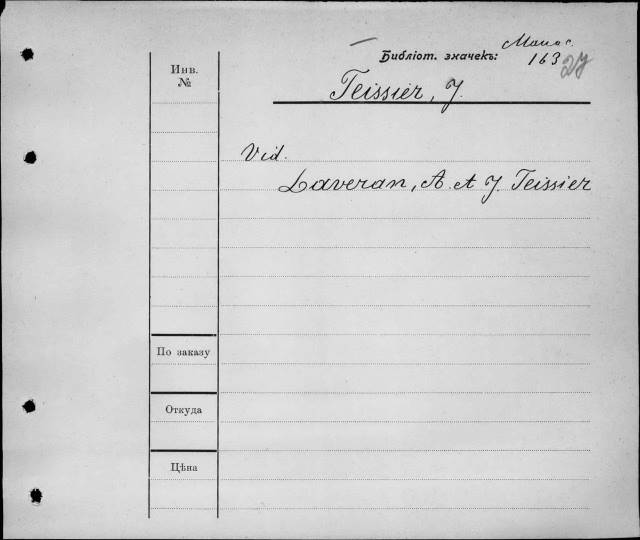 Библіот. значекъ:
163 27
Инв.
№
Teissier, J.
Vid.
Laveran, A. et J. Teissier
По заказу
Откуда
Цѣна